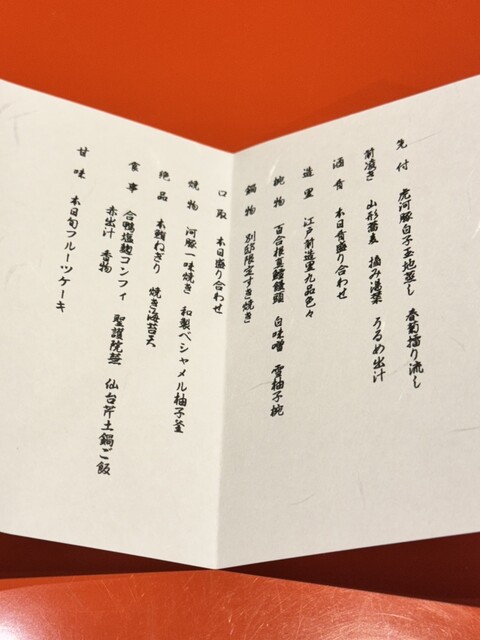 先付　虎河豚白子玉地蒸し　春菊擂り流し
前凌ぎ　山形蕎麦　摘み湯葉　うるめ出汁
酒肴　本日肴盛り合わせ
造里　江戸前造里九品色々
椀物　百合根真鱈饅頭　白味噌　雪柚子椀
鍋物　別邸限定すき焼き
口取　本日盛り合わせ
焼物　河豚一味焼き　和製ベシャメル柚子釜
絶品　本鮪ねぎり　焼き海苔天
食事　合鴨塩麹コンフィ　聖護院蕪　仙台芹土鍋ご飯
赤出汁　香物
甘味　本日旬フルーツケーキ